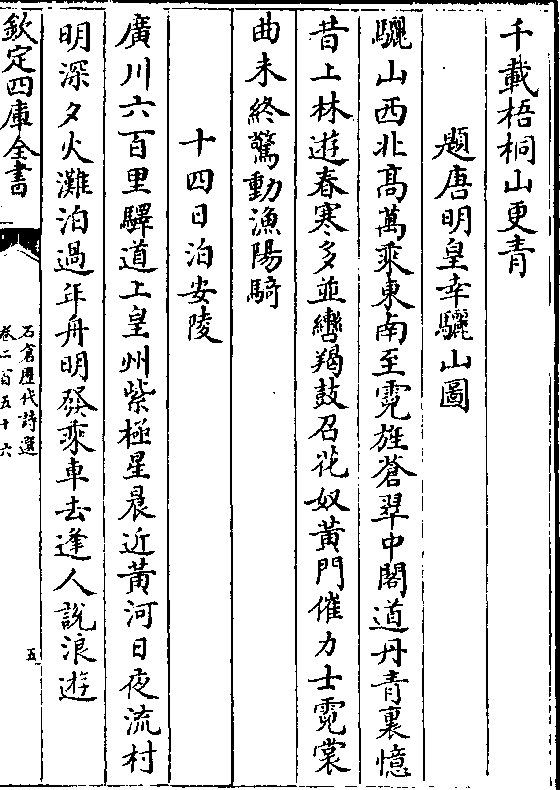 千載梧桐山更青
題唐明皇幸驪山圖
驪山西北髙萬乘東南至霓旌蒼翠中閣道丹青裏憶
昔上林遊春寒多並轡羯鼓召花奴黃門催力士霓裳
曲未終驚動漁陽騎
十四日泊安陵
廣川六百里驛道上皇州紫極星晨近黃河日夜流村
明深夕火灘泊過年舟明發乘車去逢人説浪遊
欽定四庫全書
石倉歷代詩選
卷二百五十六
五